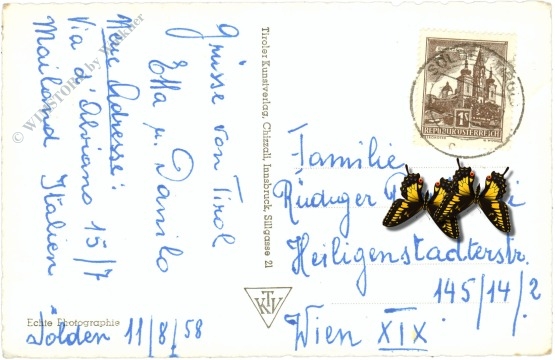 Grüsse von Tirol
Etta u. Danilo
Neue Adresse:
Via d'Alviano 15/7
Mailand Italien
Sölden 11/8/58
Echte Photographie
Tiroler Kunstverlag, Chizzali, Innsbruck, Sillgasse 21
KTV
REPUBLIK ÖSTERREICH
Familie
Rüdiger
Heiligenstadterstr.
145/14/2
Wien XIX
© WINSTORE by Winkler